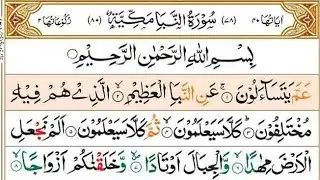 اٰيَاتُهَا ٤٠ (٧٨) سُوْرَةُ النَّبَاِ مَكِّيَّةٌ (٨٠) رُكُوْعَاتُهَا ٢
بِسْمِ اللّٰهِ الرَّحْمٰنِ الرَّحِيْمِ
عَمَّ يَتَسَآءَلُوْنَ ۚ ١ عَنِ النَّبَاِ الْعَظِيْمِ ۙ ٢ الَّذِيْ هُمْ فِيْهِ
مُخْتَلِفُوْنَ ؕ ٣ كَلَّا سَيَعْلَمُوْنَ ۙ ٤ ثُمَّ كَلَّا سَيَعْلَمُوْنَ ٥ اَلَمْ نَجْعَلِ
الْاَرْضَ مِهٰدًا ۙ ٦ وَّالْجِبَالَ اَوْتَادًا ۪ ٧ وَّخَلَقْنٰكُمْ اَزْوَاجًا ۙ ٨